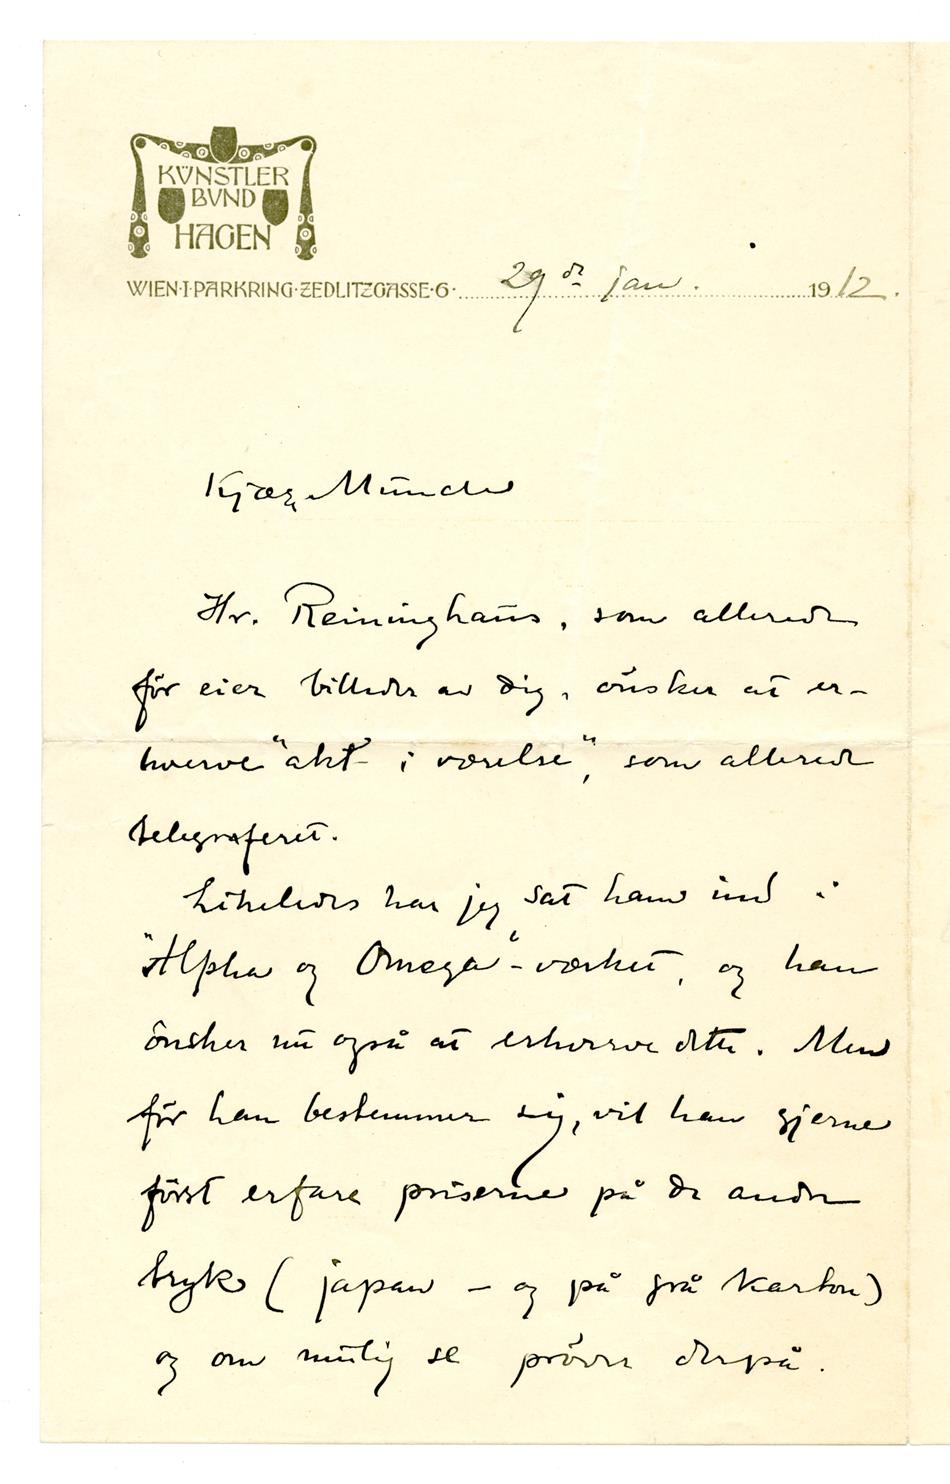 KÜNSTLER
BUND
HAGEN
WIEN·I·PARKRING·ZEDLITZGASSE·6· 29de jan. 1912.
Kjære Munch
Hr. Reininghaus, som allerede
för eier billeder av Dig, önsker at er-
hverve "akt i værelse", som allerede
telegraferet.
Likeledes har jeg sat ham ind i
"Alpha og Omega"-værket, og han
önsker nu også at erhverve dette. Men
för han bestemmer sig, vil han gjerne
först erfare priserne på de andre
tryk (japan – og på grå karton)
og om mulig se pröver derpå.